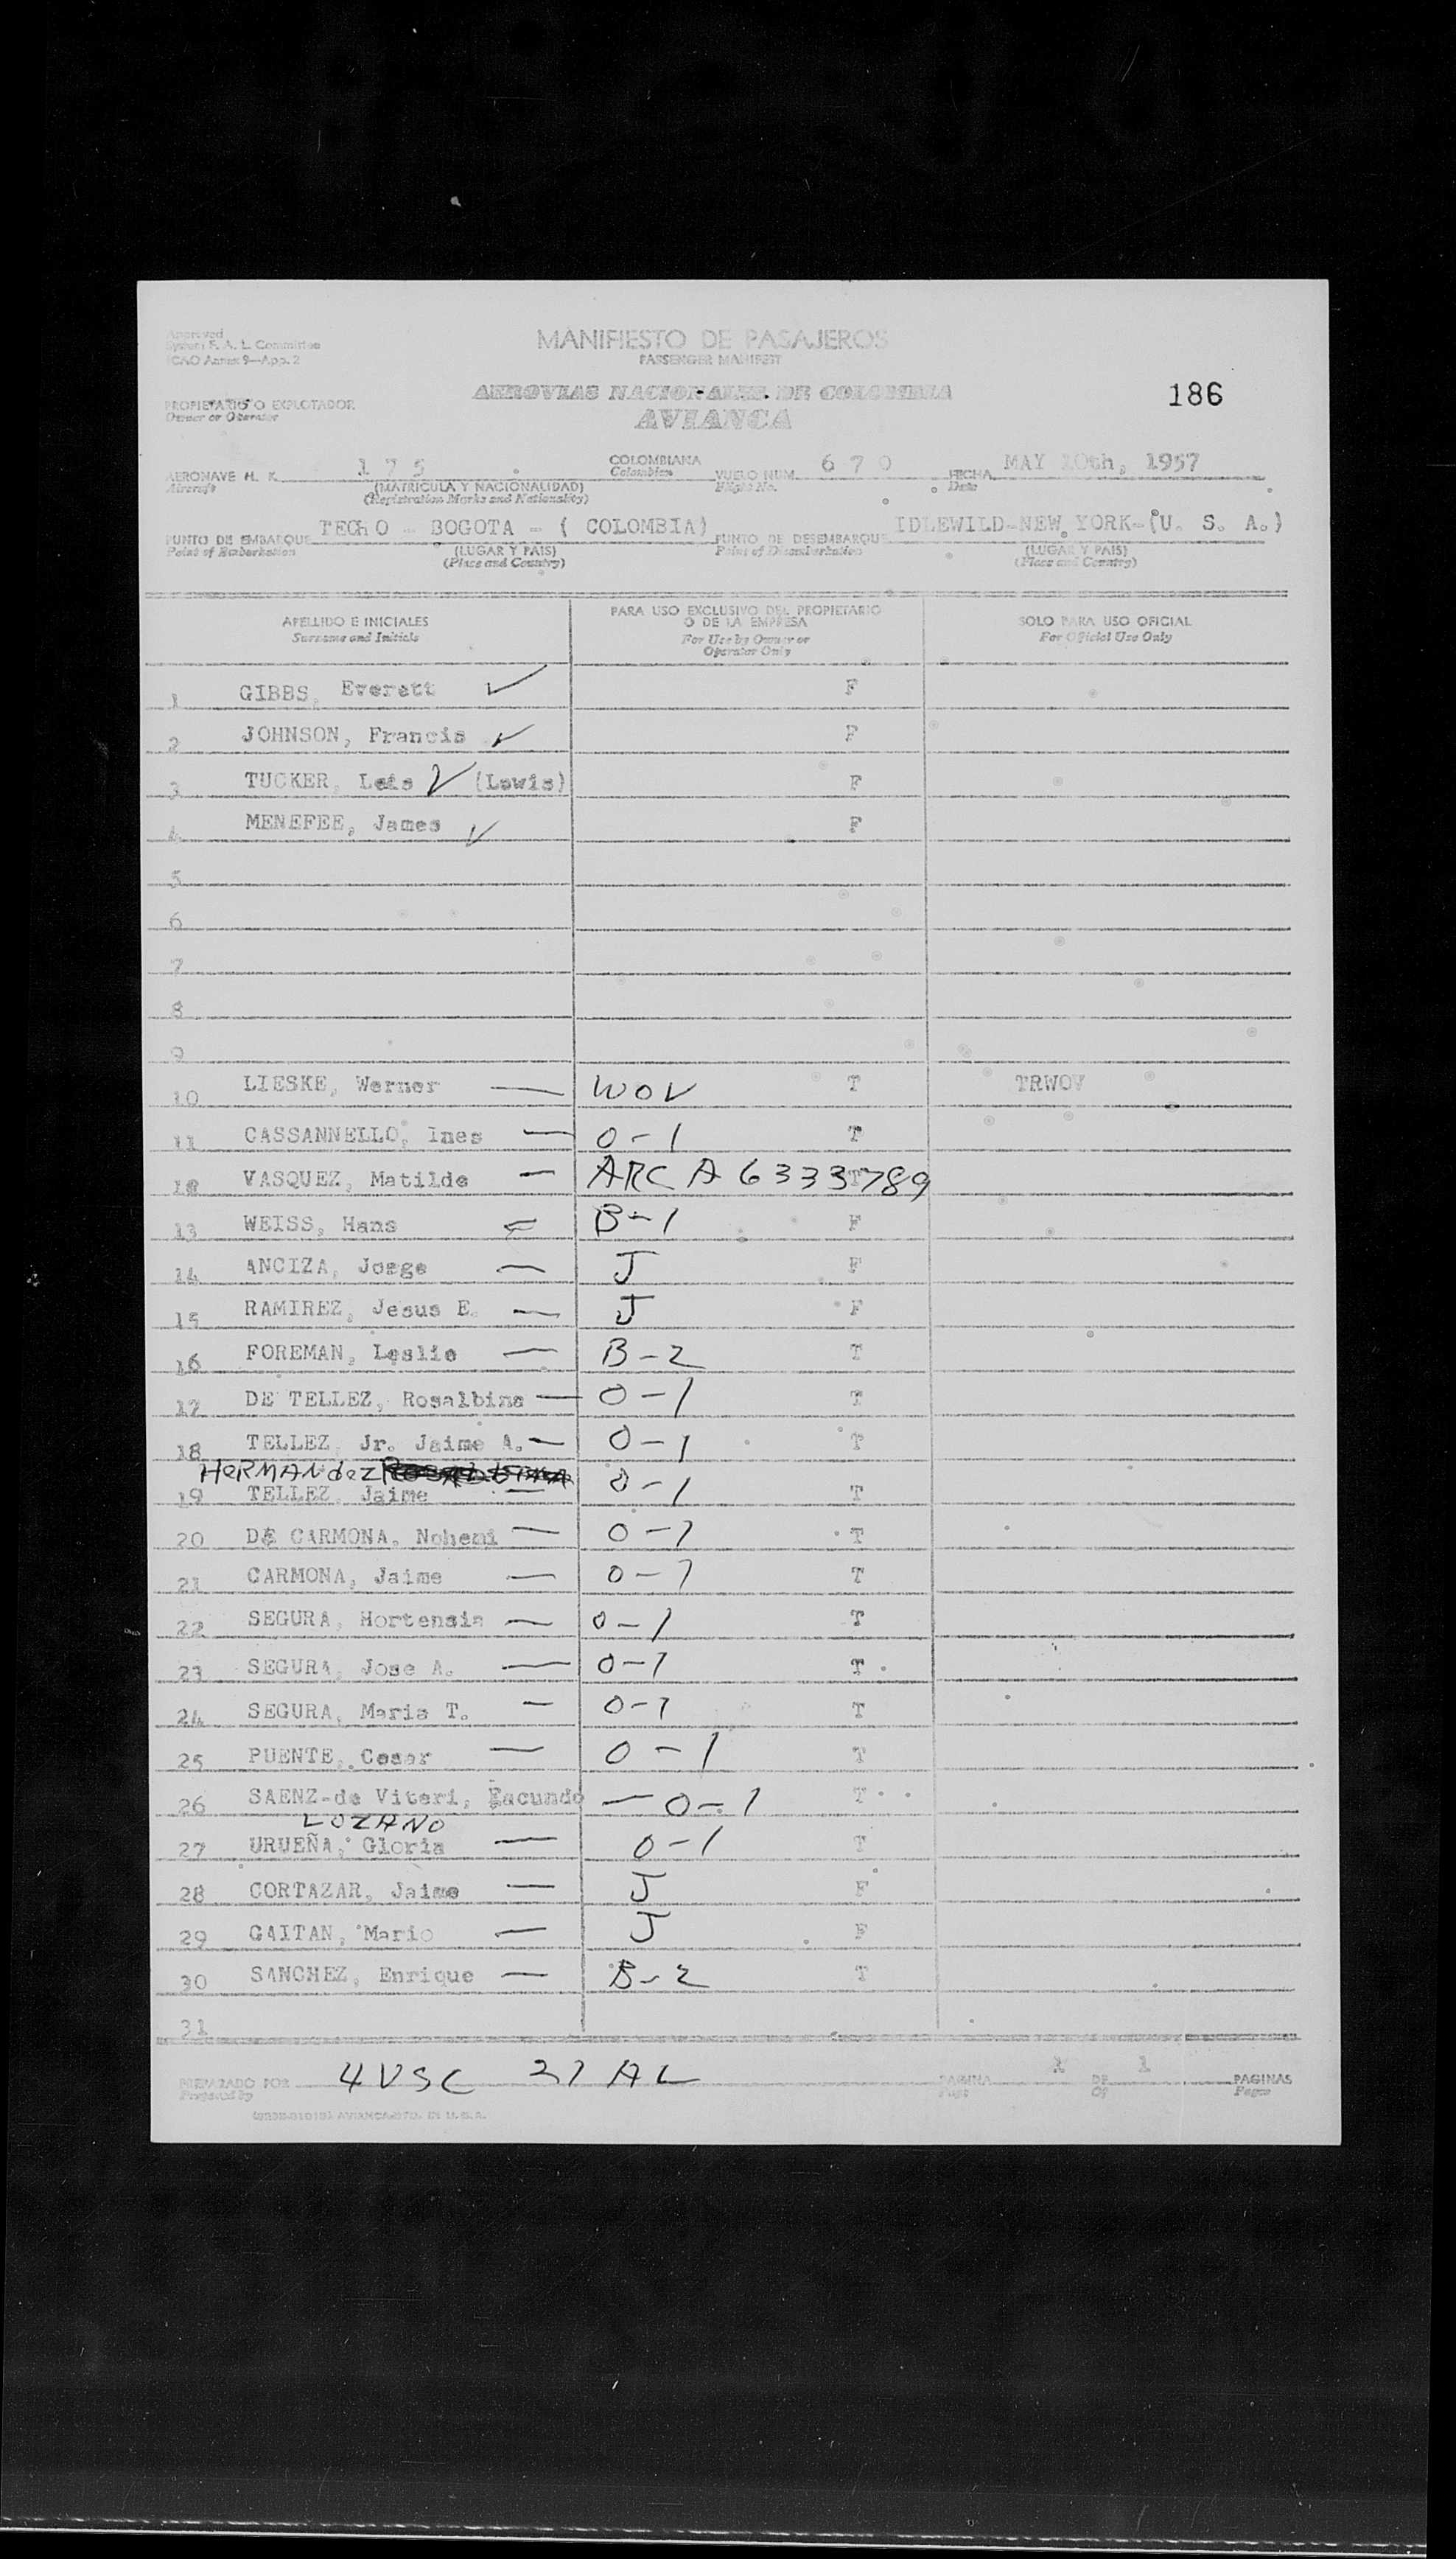 Approved
System F. A. L. Committee
ICAO Annex 9—App. 2
MANIFIESTO DE PASAJEROS
PASSENGER MANIFEST
PROPIETARIO O EXPLOTADOR
Owner or Operator
AEROVIAS NACIONALES DE COLOMBIA
AVIANCA
186
AERONAVE H. K. 175 COLOMBIANA VUELO NUM. 670 FECHA MAY 10th, 1957
Aircraft (MATRICULA Y NACIONALIDAD) Colombian Flight No. Date
(Registration Marks and Nationality)
PUNTO DE EMBARQUE TEChO - BOGOTA - ( COLOMBIA) PUNTO DE DESEMBARQUE IDLEWILD-NEW YORK-(U. S. A.)
Point of Embarkation (LUGAR Y PAIS) Point of Disembarkation (LUGAR Y PAIS)
(Place and Country) (Place and Country)
APELLIDO E INICIALES PARA USO EXCLUSIVO DEL PROPIETARIO O DE LA EMPRESA SOLO PARA USO OFICIAL
Surname and Initials For Use by Owner or Operator Only For Official Use Only
1 GIBBS, Everett ✓ F
2 JOHNSON, Francis ✓ F
3 TUCKER, Leis ✓ (Lewis) F
4 MENEFEE, James ✓ F
5
6
7
8
9
10 LIESKE, Werner — WOV T TRWOV
11 CASSANNELLO, Ines — O-1 T
12 VASQUEZ, Matilde — ARC A 6333789 T
13 WEISS, Hans — B-1 F
14 ANCIZA, Jorge — J F
15 RAMIREZ, Jesus E. — J F
16 FOREMAN, Leslie — B-2 T
17 DE TELLEZ, Rosalbina — O-1 T
18 TELLEZ, Jr. Jaime A. — O-1 T
HERMANdEZ
19 TELLEZ, Jaime — O-1 T
20 DE CARMONA, Nohemi — O-1 T
21 CARMONA, Jaime — O-1 T
22 SEGURA, Hortensia — O-1 T
23 SEGURA, Jose A. — O-1 T
24 SEGURA, Maria T. — O-1 T
25 PUENTE, Cesar — O-1 T
26 SAENZ-de Viteri, Facundo — O-1 T
LOZANO
27 URUEÑA, Gloria — O-1 T
28 CORTAZAR, Jaime — J F
29 GAITAN, Mario — J F
30 SANCHEZ, Enrique — B-2 T
31
PREPARADO POR 4 USC 21 AL PAGINA 1 DE 1 PAGINAS
Prepared by Page Of Pages